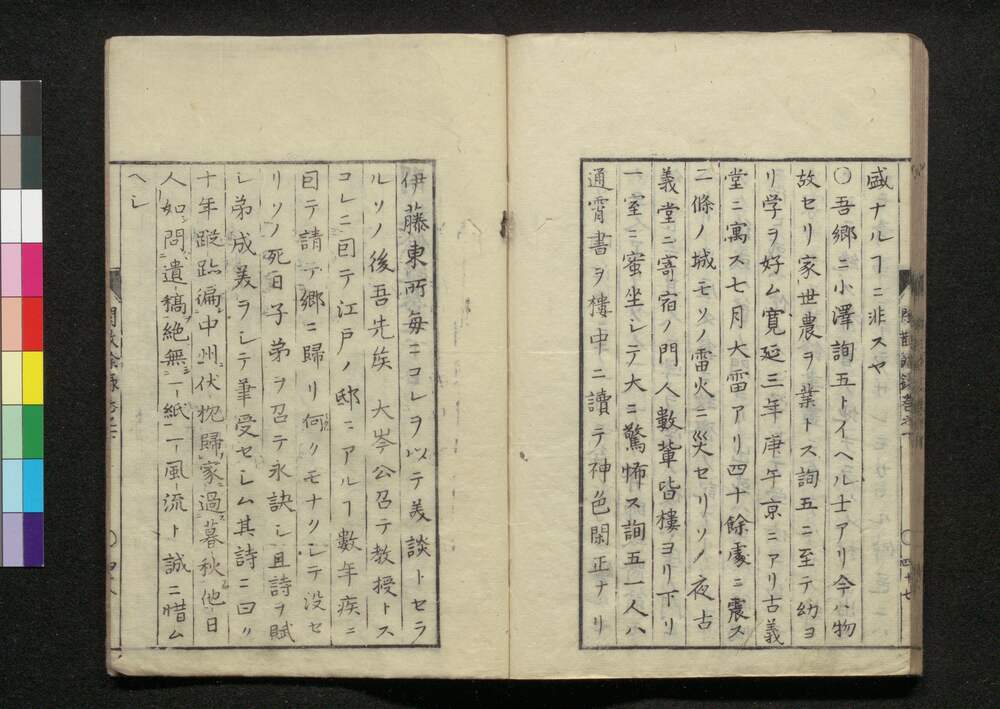 盛ナルヿニ非スヤ
〇吾郷ニ小澤詢五トイヘル士アリ今ハ物
故セリ家世農ヲ業トス詢五ニ至テ幼ヨ
リ学ヲ好ム寛延三年庚午京ニアリ古義
堂ニ寓ス七月大雷アリ四十餘處ニ震ス
二條ノ城モソノ雷火ニ災セリソノ夜古
義堂ニ寄宿ノ門人數輩皆樓ヨリ下リ
一室ニ蜜坐シテ大ニ驚怖ス詢五一人ハ
通宵書ヲ樓中ニ讀テ神色閑正ナリ
四十七
伊藤東所毎ニコレヲ以テ美談トセラ
ルソノ後吾先矦 大岑公召テ教授トス
コレニ囙テ江戸ノ邸ニアルヿ數年疾ニ
囙テ請テ郷ニ歸リ何クモナクシテ没セ
リソノ死日子弟ヲ召テ永訣シ且詩ヲ賦
シ弟成美ヲシテ筆受セシム其詩ニ曰ク
十年蹤跡徧中州伏枕歸家過暮秋他日
人如問遺稿絶無一紙一風流ト誠ニ惜ム
ヘシ